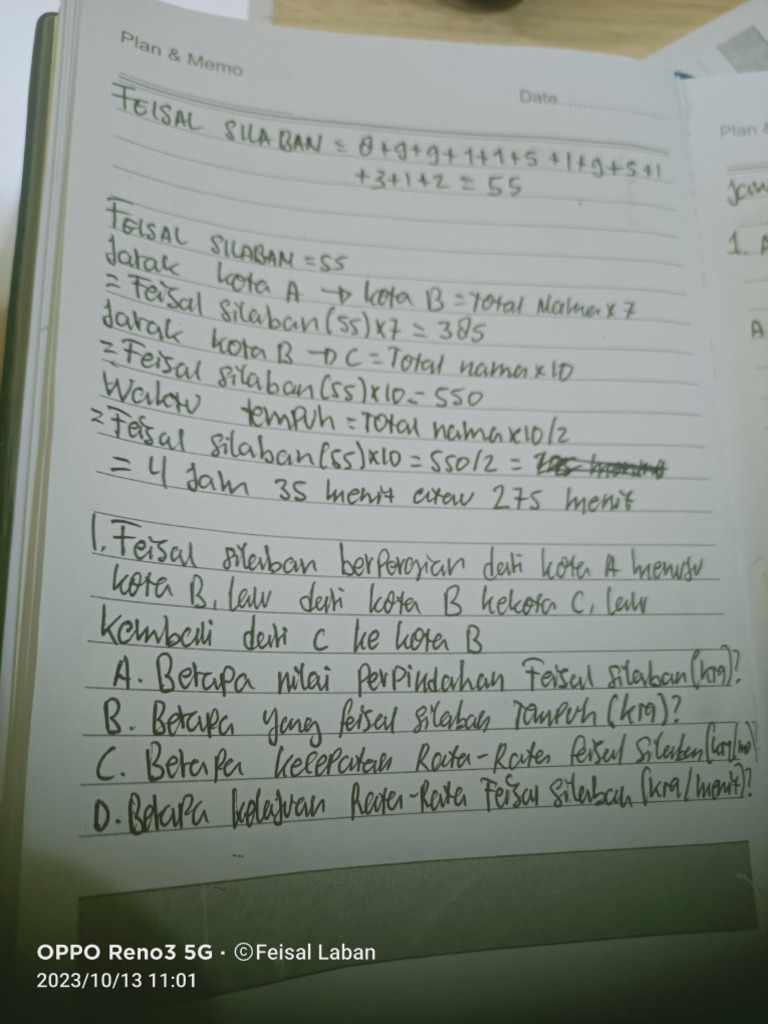 Plan & Memo
Date....................
FEISAL SILABAN = 8+9+9+1+1+5+1+9+5+1
+3+1+2 = 55
FEISAL SILABAN = 55
Jarak kota A → kota B = Total Nama x 7
= Feisal silaban (55) x 7 = 385
Jarak kota B → C = Total nama x 10
= Feisal silaban (55) x 10 = 550
Waktu tempuh = Total nama x 10/2
= Feisal silaban (55) x 10 = 550/2 =
= 4 Jam 35 menit atau 275 menit
1. Feisal silaban berpergian dari kota A menuju
kota B, lalu dari kota B kekota C, lalu
kembali dari C ke kota B
A. Berapa nilai perpindahan Feisal silaban (km)?
B. Berapa yang feisal silaban Tempuh (km)?
C. Berapa kecepatan Rata-Rata feisal silaban
D. Berapa kelajuan Rata-Rata Feisal silaban (km/menit)?
OPPO Reno3 5G · ©Feisal Laban
2023/10/13 11:01
Plan &
1. A
A